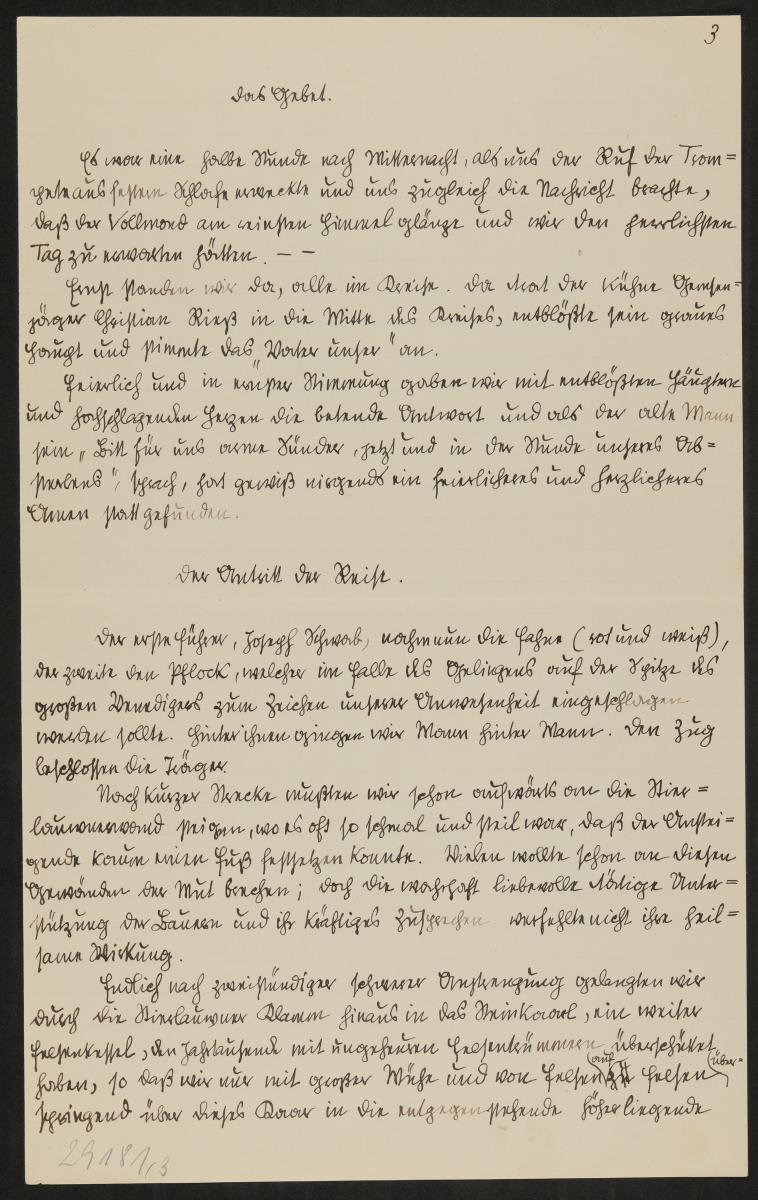 3
Das Gebet.
Es war eine halbe Stunde nach Mitternacht, als uns der Ruf der Trom=
pete aus festem Schlafe erweckte und uns zugleich die Nachricht brachte,
daß der Vollmond am reinsten Himmel glänze und wir den herrlichsten
Tag zu erwarten hätten. — —
Ernst standen wir da, alle im Kreise. Da trat der kühne Gemsen=
jäger Christian Rieß in die Mitte des Kreises, entblößte sein graues
Haupt und stimmte das „Vater unser" an.
Feierlich und in ernster Stimmung gaben wir mit entblößten Häuptern
und hochschlagenden Herzen die betende Antwort und als der alte Mann
sein „Bitt für uns arme Sünder, jetzt und in der Stunde unseres Ab=
sterbens", sprach, hat gewiß nirgends ein feierlicheres und herzlicheres
Amen stattgefunden.
Der Antritt der Reise.
Der erste Führer, Joseph Schwab, nahm nun die Fahne (rot und weiß),
der zweite den Pflock, welcher im Falle des Gelingens auf der Spitze des
großen Venedigers zum Zeichen unserer Anwesenheit eingeschlagen
werden sollte. Hinter ihnen gingen wir Mann hinter Mann. Den Zug
beschlossen die Träger.
Nach kurzer Strecke mußten wir schon aufwärts an die Stier=
lauwnerwand steigen, wo es oft so schmal und steil war, daß der Anstei=
gende kaum einen Fuß festsetzen konnte. Vielen wollte schon an diesen
Gewänden der Mut brechen; doch die wahrhaft liebevolle tätige Unter=
stützung der Bauern und ihr kräftiges Zusprechen verfehlte nicht ihre heil=
same Wirkung.
Endlich nach zweistündiger schwerer Anstrengung gelangten wir
durch die Stierlauwner Klamm hinaus in das Steinkaarl, ein weiter
Felsenkessel, den Jahrtausende mit ungeheuren Felsentrümmern überschüttet
haben, so daß wir nur mit großer Mühe und von Felsen auf Felsen über=
springend über dieses Kaar in die entgegenstehende höher liegende
29181/3